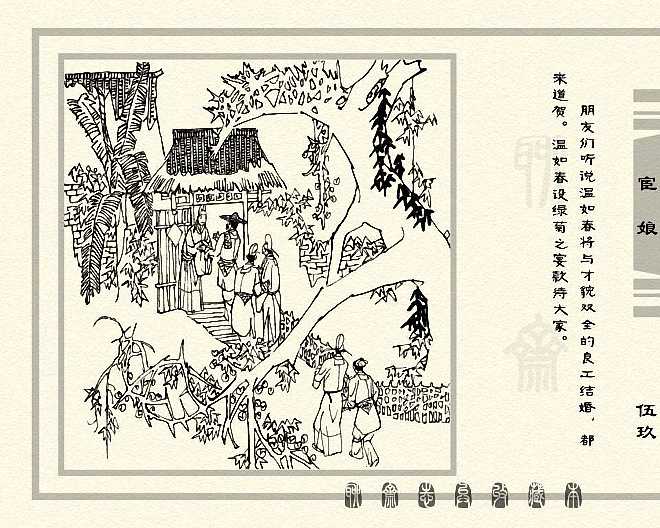 朋友们听说温如春将与才貌双全的良工结婚，都
来道贺。温如春设绿菊之宴款待大家。
宦娘
伍玖
聊斋志异收藏本